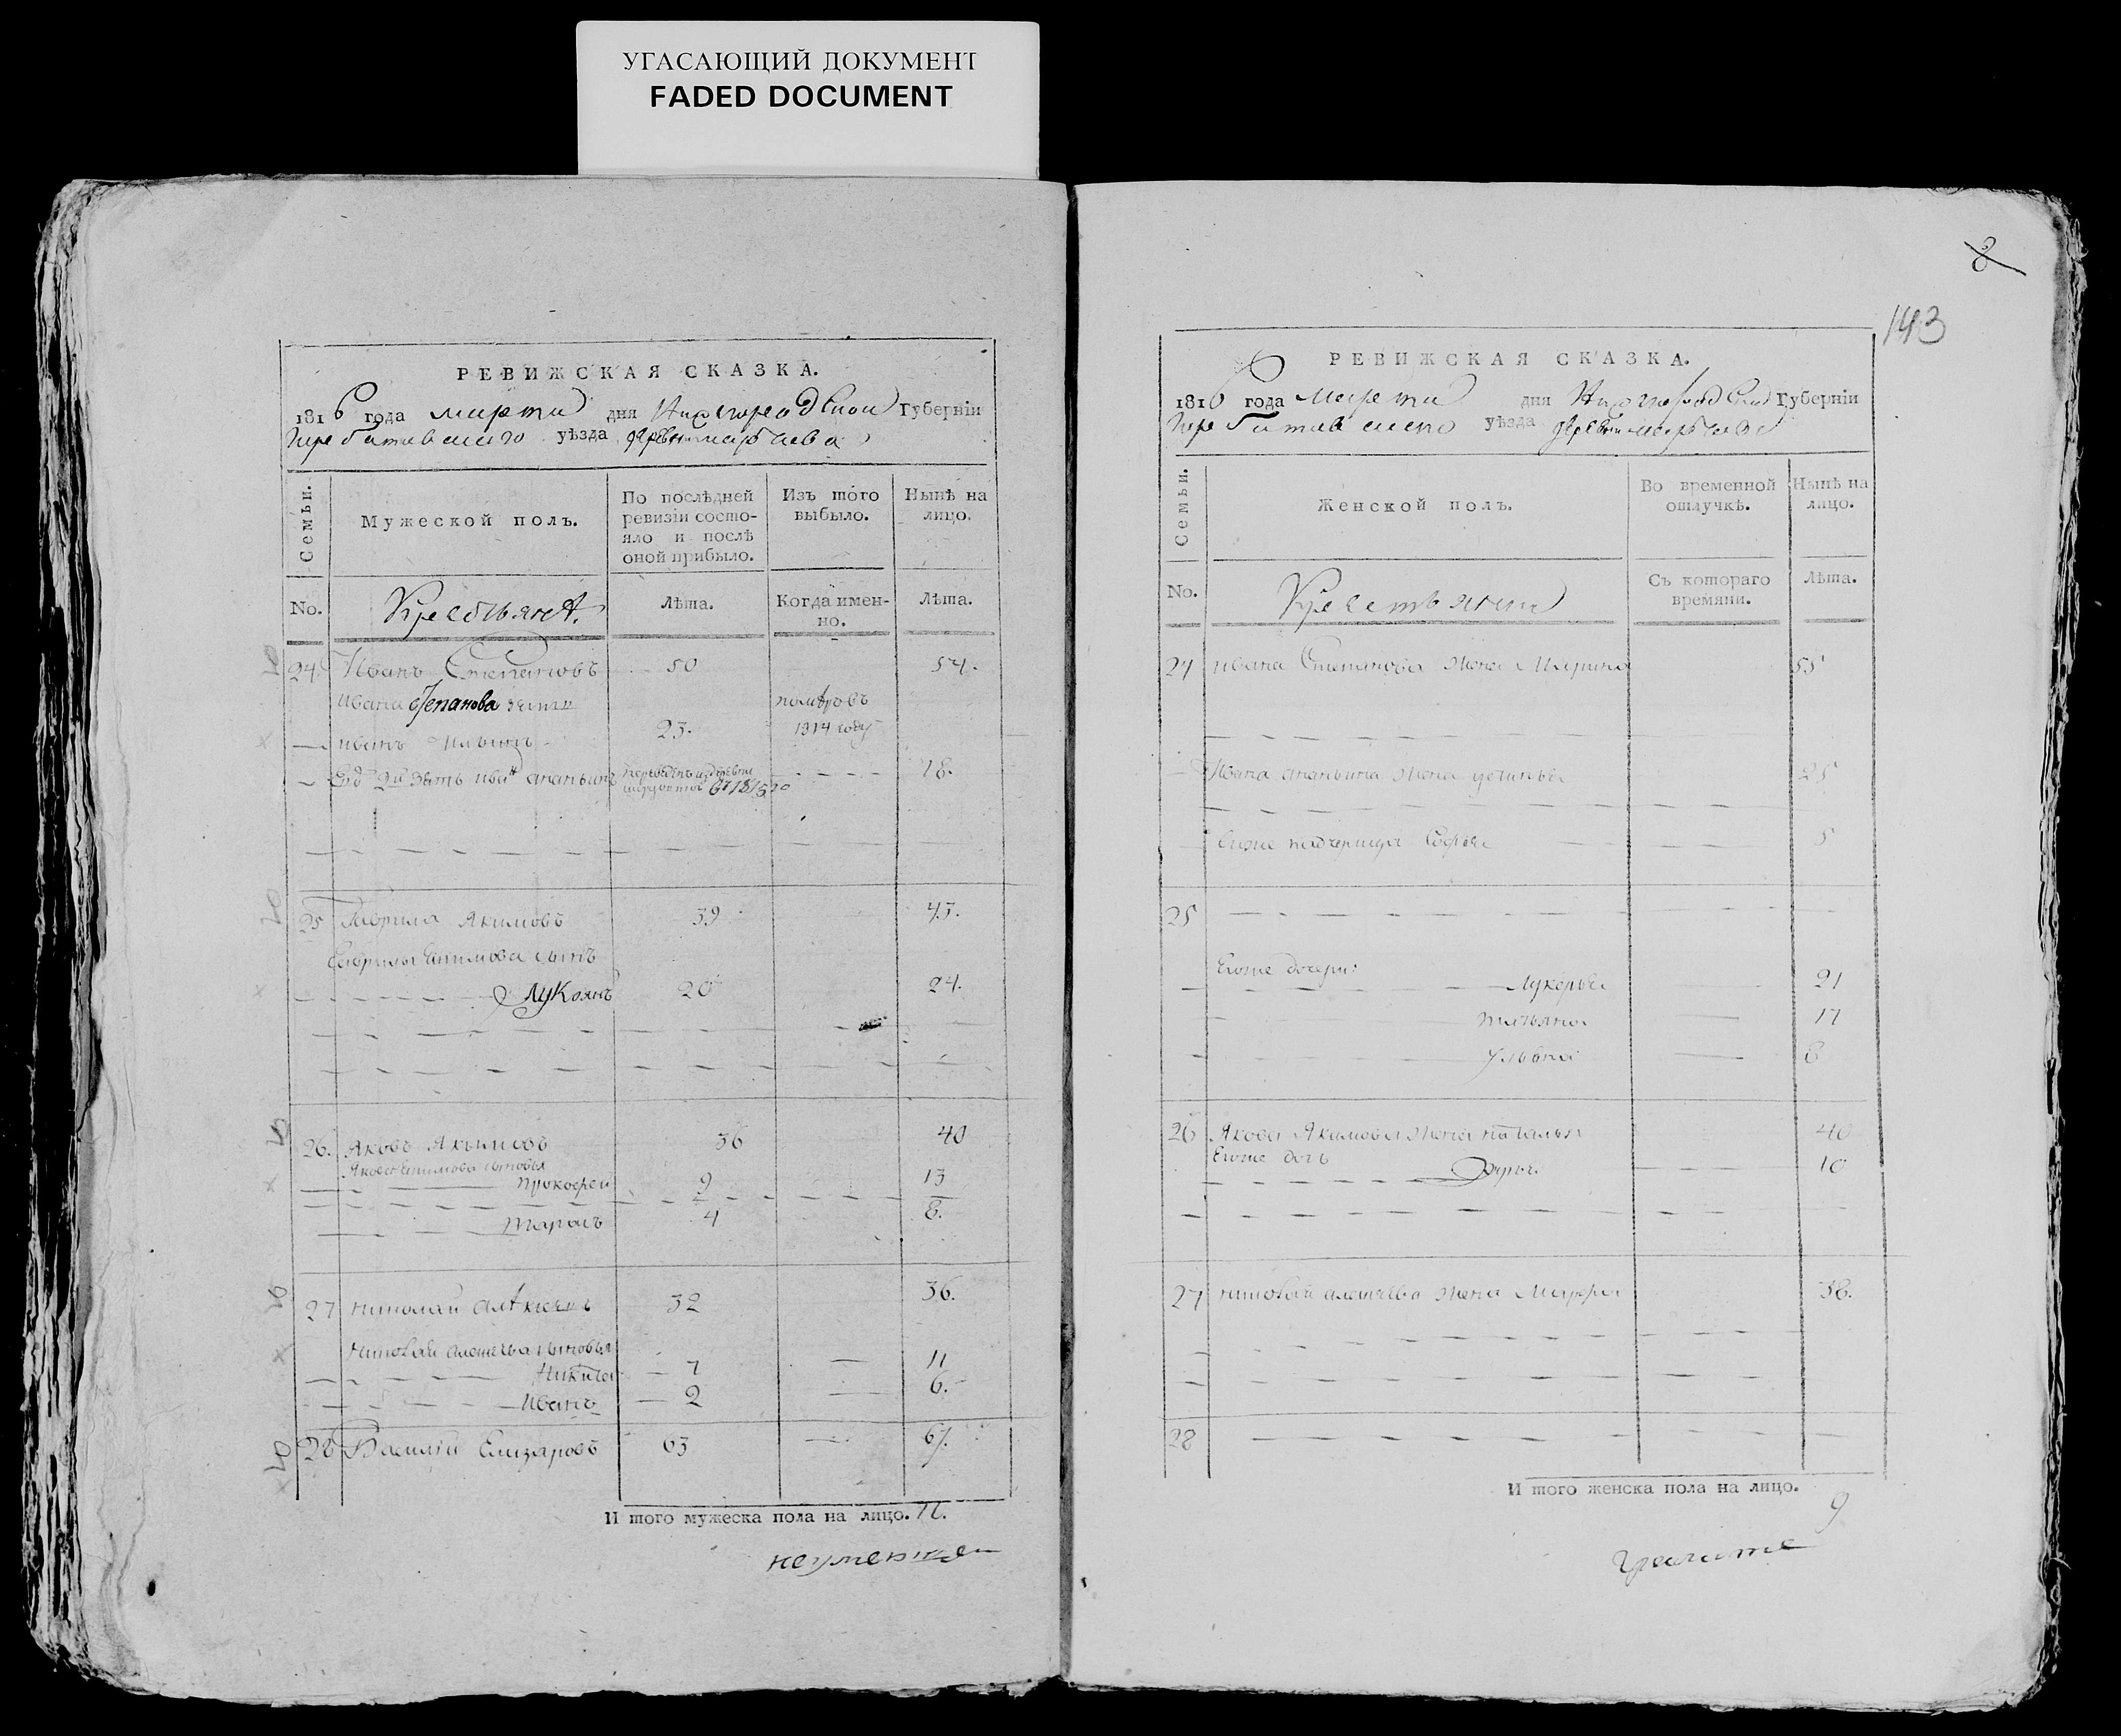 УГАСАЮЩИЙ ДОКУМЕНТ
FADED DOCUMENT
РЕВИЖСКАЯ СКАЗКА.
1816 года марта дня Нижегородской Губерніи
уѣзда деревни
Семьи.
Мужеской полъ.
По послѣдней ревизіи состо-
яло и послѣ
оной прибыло.
Изъ того
выбыло.
Нынѣ на
лицо.
No.
Крестьянѣ.
Лѣта.
Когда имен-
но.
Лѣта.
24. Иванъ Степановъ 50 54.
Ивана Степанова зять помѣръ въ
иванъ Ильинъ 23. 1814 году
Ево 2й зять иванъ ананьинъ 28.
25 Гаврила Якимовъ 39 43.
Гаврилы Екимова сынъ
Лукоянъ 20 24.
26. Яковъ Якимовъ 36 40
Якова Екимова сыновья
прокофеи 9 13
тарасъ 4 8.
27 николаи алѣксѣевъ 32 36.
николая алексѣева сыновья
Никита 7 11
Иванъ 2 6.
28 Василіи Елизаровъ 63 67.
И того мужеска пола на лицо.
8
143
РЕВИЖСКАЯ СКАЗКА.
1816 года марта дня Губерніи
уѣзда деревни
Семьи.
Женской полъ.
Во временной
отлучкѣ.
Нынѣ на
лицо.
No.
Крестьяне
Съ котораго
времяни.
Лѣта.
24 ивана Степанова жена Марина 55
Ивана ананьина жена устинья 25
падчерица Софья 5
25
Егоже дочери:
Лукерья 21
татьяна 17
ульяна 8
26 Якова Якимова жена наталья 40
Егоже дочь Дарья 10
27 николая алексѣева жена Марфа 38.
28
И того женска пола на лицо.
9